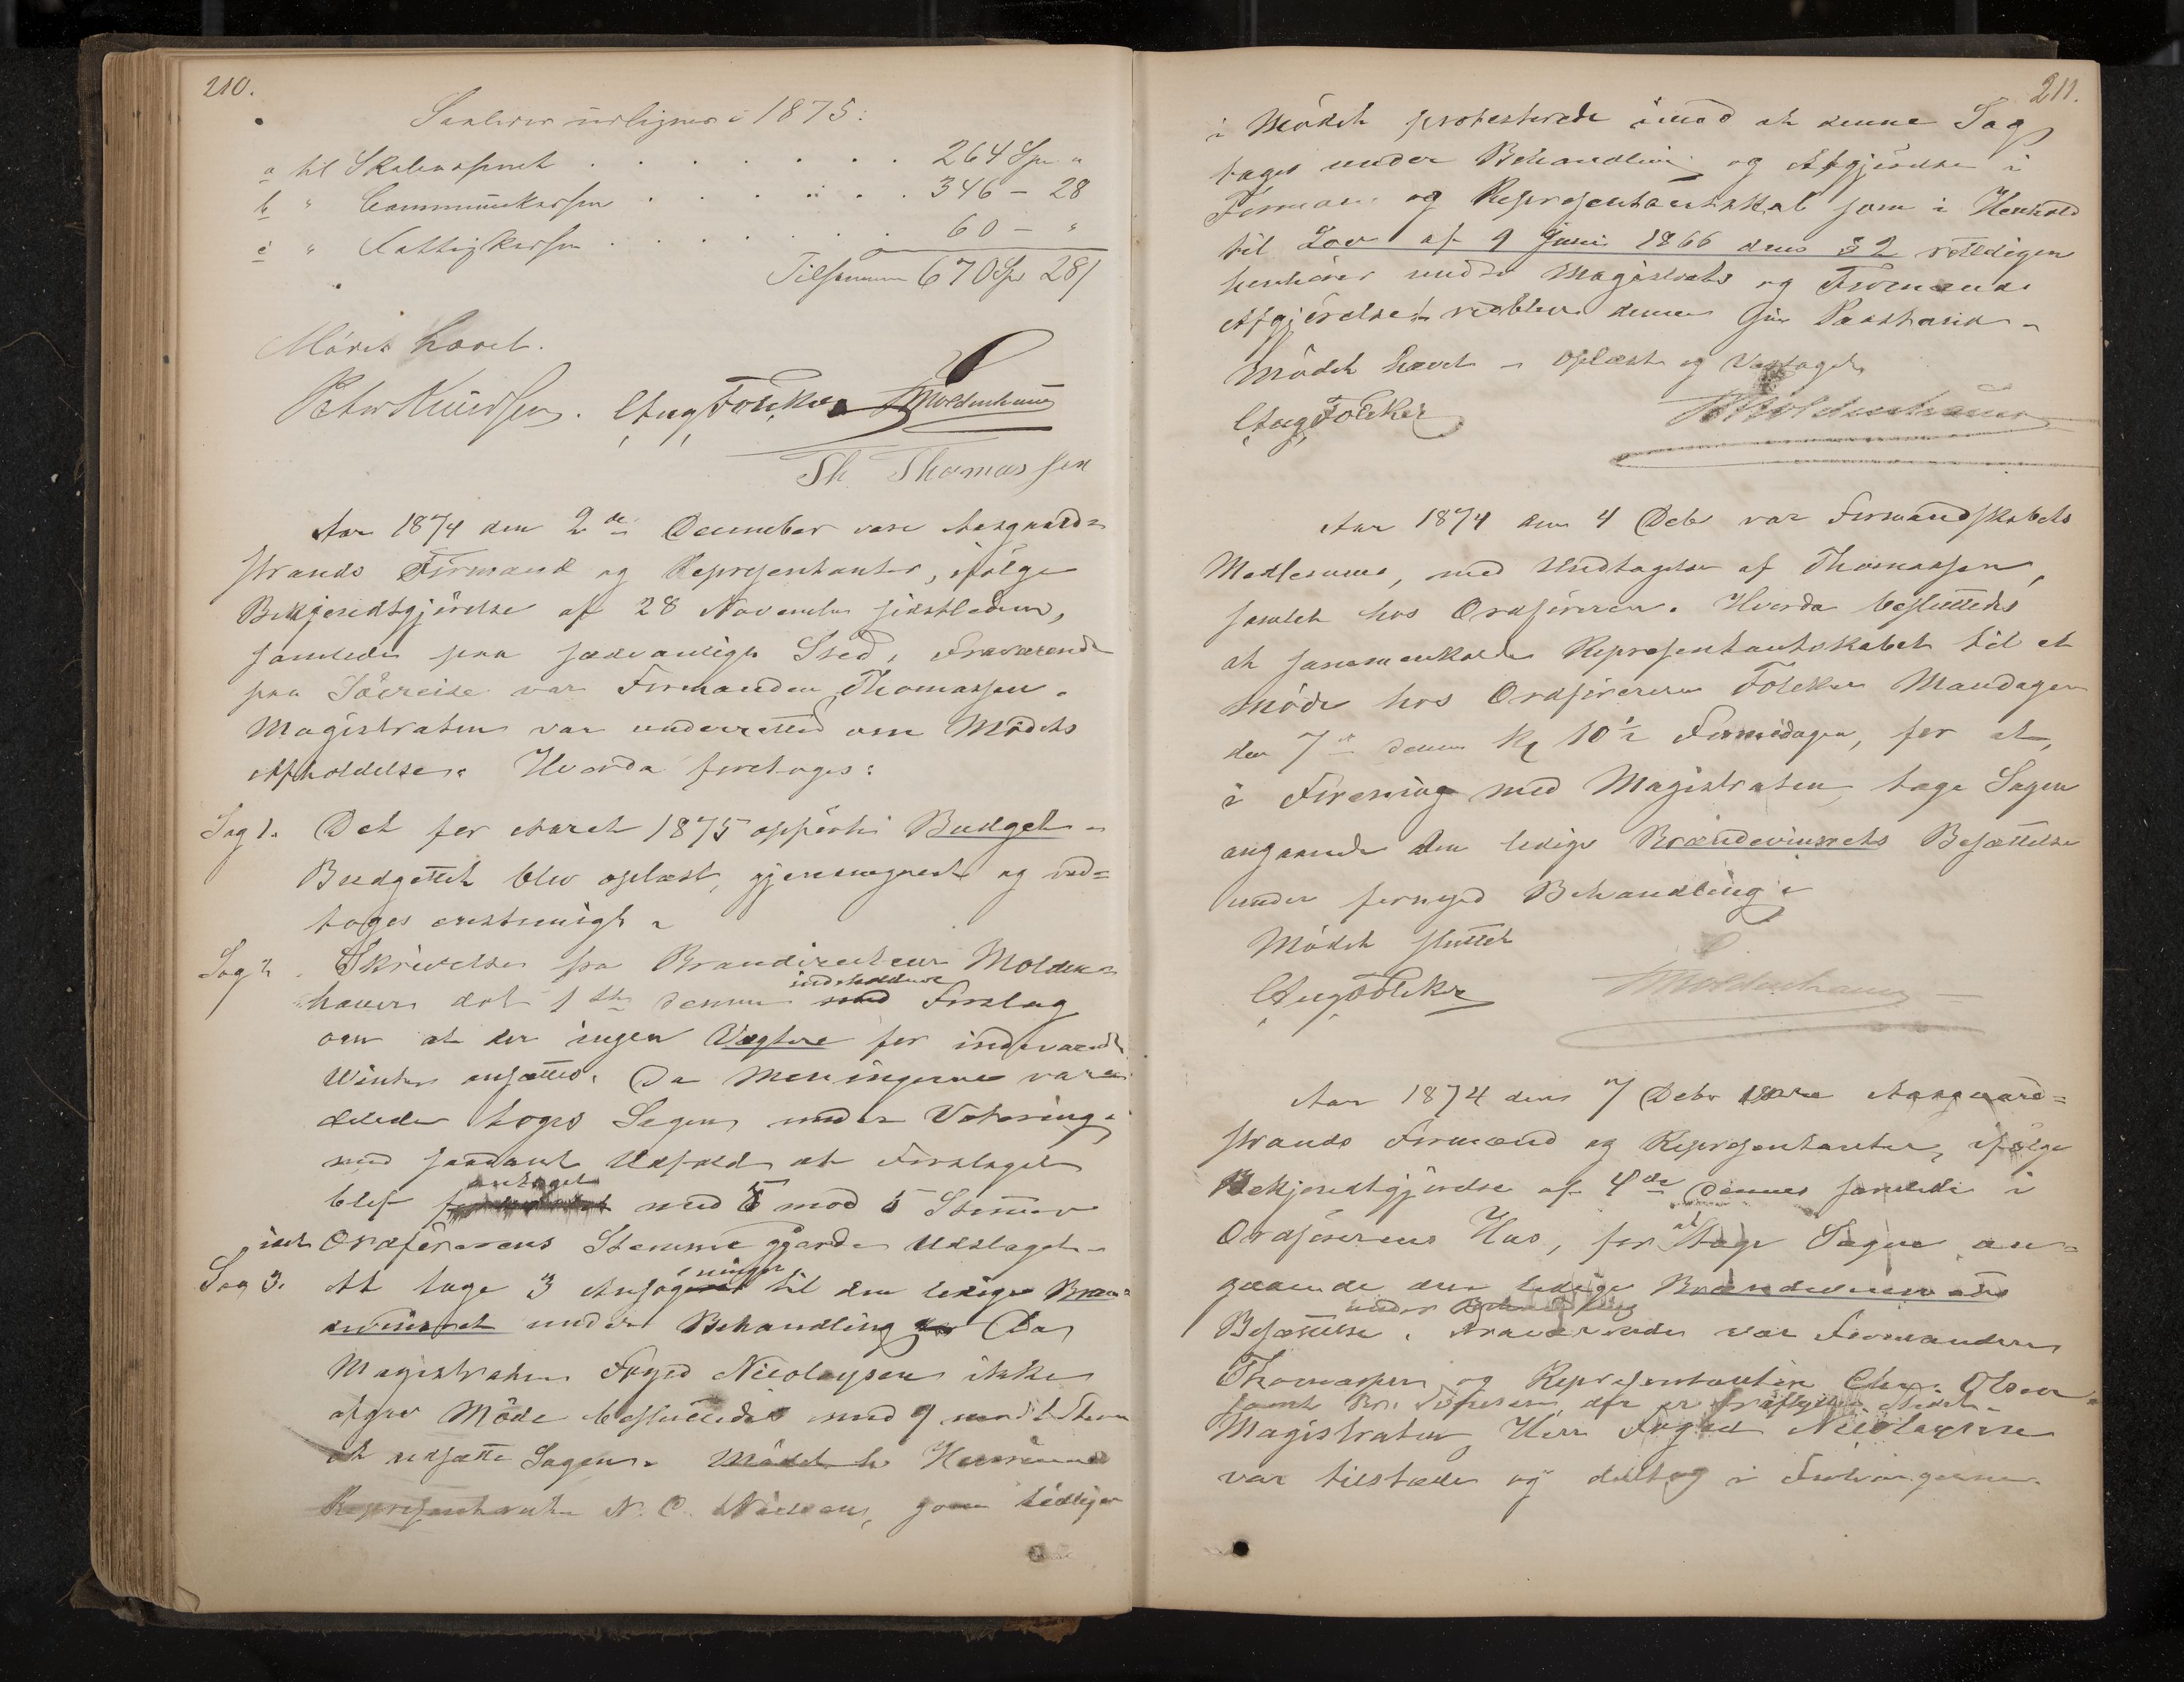 210.
Saaledes udlignes i 1875:
a til Skolevæsenet . . . . . . . 264 Spd "
b " Communekassen . . . . . . 346 - 28
c " Fattigkassen . . . . . . . 60 - "
Tilsammen 670 Spd 28 /
Mödet hævet.
Peter Knudsen. C Aug Fölcker Moldenhauer
Th Thomassen
Aar 1874 den 2de December vare Aasgaard=
strands Formænd og Repræsentanter, ifölge
Bekjendtgjörelse af 28 November sidstleden,
samlede paa sædvanligt Sted, Fraværende
paa Söreise var Formanden Thomassen.
Magistraten var underretted om Mödets
Afholdelse. Hvorda foretoges:
Sag 1. Det for Aaret 1875 opförte Budget -
Budgettet blev oplæst, gjennemgaaet og ved=
toges enstemigt -
Sag 2. Skrivelse fra Branddirecteur Molden=
hauer dat 1ste dennes indeholdende Forslag
om at der ingen Vægtere for indeværende
Winter ansættes. Da Meningerne vare
deelede toges Sagen under Votering,
med saadant Udfald at Forslaget
blef antaget med 5 mod 5 Stemmer
idet Ordförerens Stemme gjorde Udslaget -
Sag 3. At tage 3 Ansögninger til den ledige Bræn=
devinsret under Behandling Da
Magistraten Foged Nicolaysen ikke
afgav Möde besluttedes med 9 mod 1 Stem
at udsætte Sagen. Mödet h
Repræsentanten N. C. Nielsen, som tidliger
211.
i Mödet protesterede imod at denne Sag
tages under Behandling og Afgjörelse i
Formand og Repræsentantskab som i Henhold
til Lov af 9 Juni 1866 dens § 2 retteligen
henhörer under Magistrats og Formænds
Afgjörelse vedblev denne sin Paastand -
Mödet hævet - oplæst og Vedtaget
C Aug Fölcker Moldenhauer
Aar 1874 den 4 Debr var Formandskabets
Medlemmer, med Undtagelse af Thomassen,
samlet hos Ordföreren. Hvorda besluttedes
at sammenkalde Repræsentantskabet til et
Möde hos Ordföreren Fölcker Mandagen
den 7de dennes Kl 10½ Formidagen, for at,
i Forening med Magistraten, tage Sagen
angaaende den ledige Brændevinsrets Besættelse
under fornyed Behandling -
Mödet sluttet
C Aug Fölcker Moldenhauer
Aar 1874 den 7 Debr vare Aasgaard=
strands Formænd og Repræsentanter, ifölge
Bekjendtgjörelse af 4de Dennes samlede i
Ordförerens Hus, for at tage Sagen an=
gaaende den ledige Brændevinsrets
Besættelse under Behandling. Fraværende var Formanden
Thomassen og Repræsentanten Chr. Olsen
samt der er fraflyttet Stedet -
Magistraten Herr Foged Nicolaysen
var tilstæde og deeltog i Forhandlingerne.